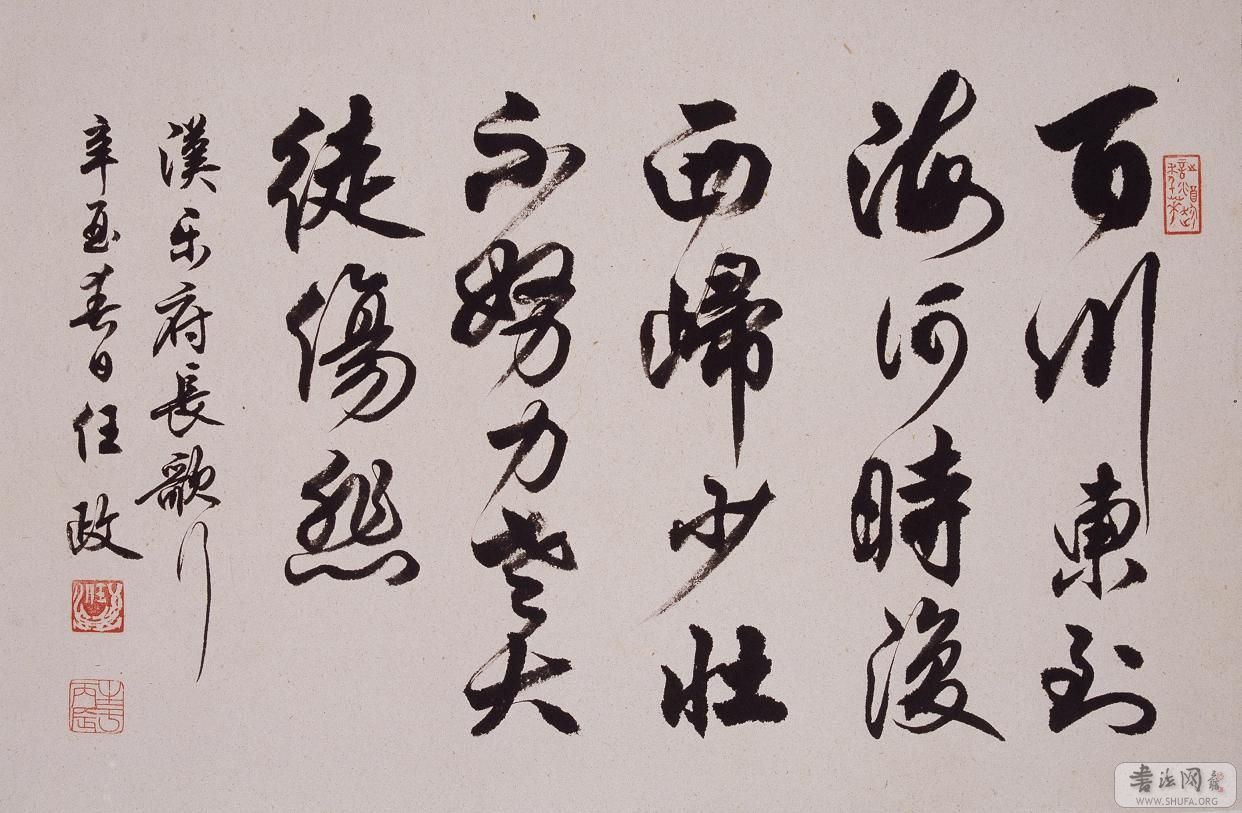 百川東到
海何時復
西歸少壯
不努力老大
徒傷悲
漢乐府長歌行
辛酉春日任政
书法网
WWW.SHUFA.ORG